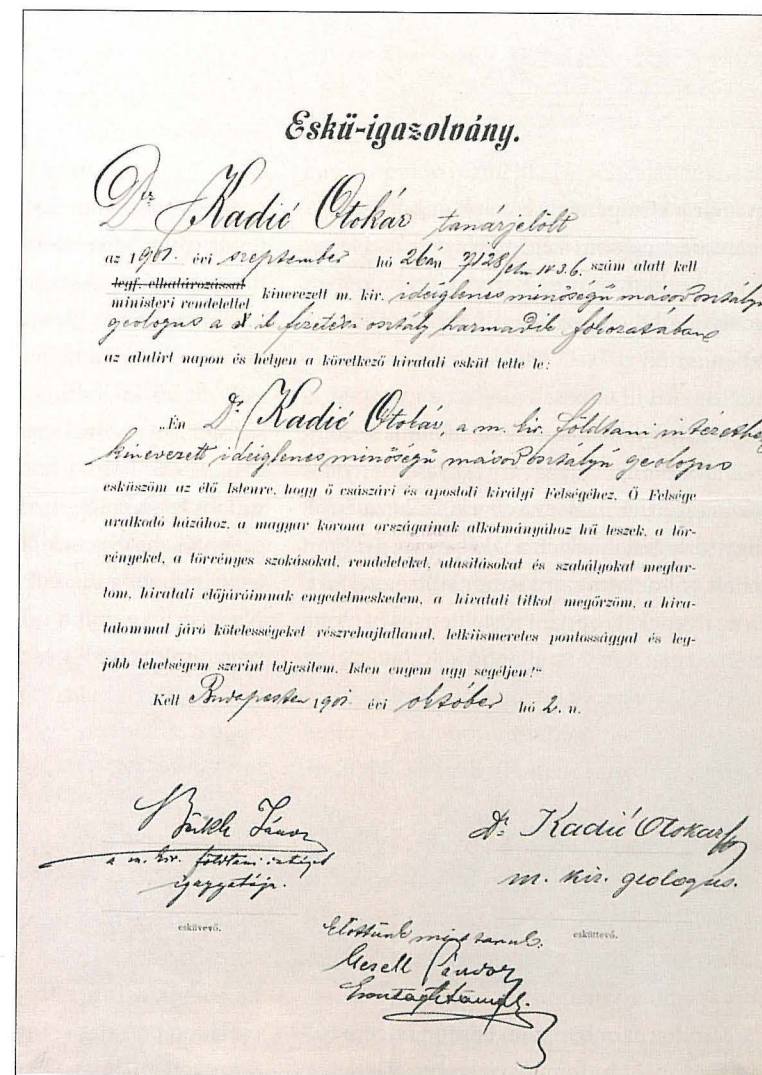 Eskü-igazolvány.
Dr Kadić Otokár tanárjelölt
az 1901. évi szeptember hó 26án 7128/ szám alatt kelt
legf. elhatározással
ministeri rendelettel kinevezett m. kir. ideiglenes minőségű másodosztályú
geologus a X ik fizetési osztály harmadik fokozatában
az alulirt napon és helyen a következő hivatali esküt tette le:
„Én Dr Kadić Otokár, a m. kir. földtani intézethez
kinevezett ideiglenes minőségű másodosztályú geologus
esküszöm az élő Istenre, hogy ő császári és apostoli királyi Felségéhez, Ő Felsége
uralkodó házához, a magyar korona országainak alkotmányához hű leszek, a tör-
vényeket, a törvényes szokásokat, rendeleteket, utasításokat és szabályokat megtar-
tom, hivatali előjáróimnak engedelmeskedem, a hivatali titkot megőrzöm, a hiva-
talommal járó kötelességeket részrehajlatlanul, lelkiismeretes pontossággal és leg-
jobb tehetségem szerint teljesitem. Isten engem ugy segéljen!"
Kelt Budapesten 1901. évi október hó 2. n.
Böckh János
a m. kir. földtani intézet
igazgatója.
eskűvevő.
Dr Kadić Otokar
m. kir. geologus.
esküttevő.
Előttünk mint tanuk:
Gesell Sándor